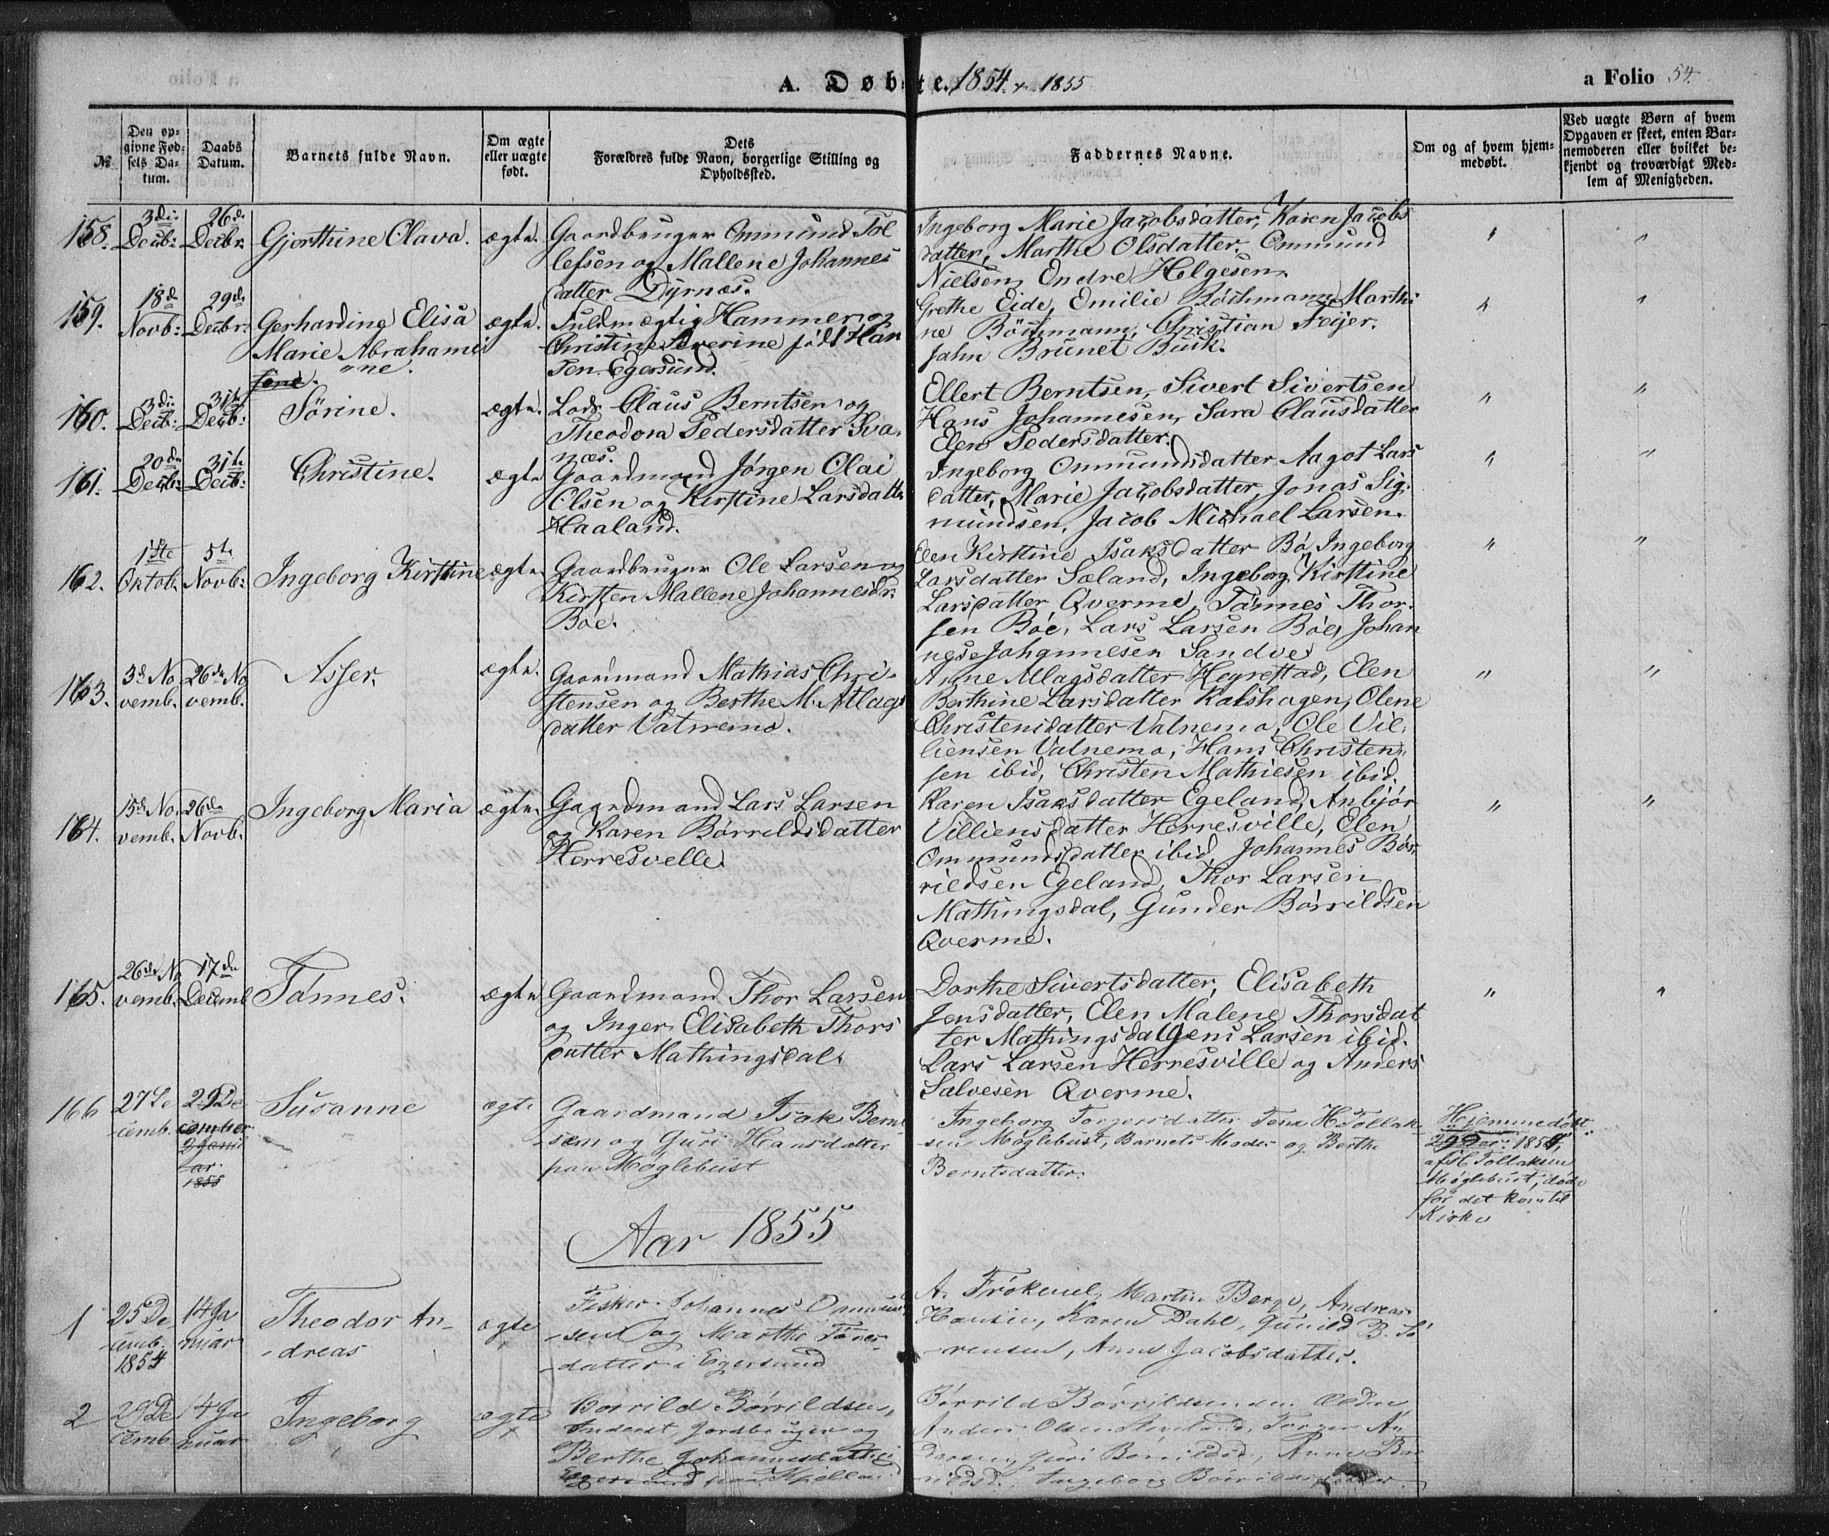 A. Døbte. 1854. + 1855
a Folio 54.
№
Den op-
givne Fød-
sels Da-
tum.
Daabs
Datum.
Barnets fulde Navn.
Om ægte
eller uægte
født.
Dets
Forældres fulde Navn, borgerlige Stilling og
Opholdssted.
Faddernes Navne.
Om og af hvem hjem-
medøbt.
Ved uægte Børn af hvem
Opgaven er skeet, enten Bar-
nemoderen eller hvilket be-
kjendt og troværdigt Med-
lem af Menigheden.
158.
3di
Decb:
26d
Decbr.
Gjorthine Olava.
ægte.
Gaardbruger Ommund Tol
lefsen og Mallene Johannes
datter Dyrnæs.
Ingeborg Marie Jacobsdatter, Karen Jacobs
datter, Marthe Olsdatter, Ommund
Nielsen, Endre Helgesen.
"
"
159.
18d
Novb:
29d
Decbr:
Gerhardine Elisa
Marie Abrahami
ne.
ægte.
Fuldmægtig Hammer og
Christine Severine født Han
sen Egersund.
Grethe Eide, Emilie Böshmann, Marthi
ne Böshmann, Christian Feijer.
Jahn Brunet Buik.
"
"
160.
3di
Decb:
31te
Decb:
Sörine.
ægte.
Lods Claus Berntsen og
Theodora Pedersdatter Sva
næs.
Ellert Berntsen, Sivert Sivertsen
Hans Johannesen, Sara Clausdatter
Elen Pedersdatter.
"
"
161.
20de
Decb:
31te
Decb:
Christine.
ægte
Gaardmand Jörgen Olai
Olsen og Kirstine Larsdatt.
Haaland.
Ingeborg Ommundsdatter Aagot Lars
datter, Marie Jacobsdatter, Jonas Sig-
mundsen, Jacob Michael Larsen.
"
"
162.
1ste
Oktob.
5te
Novb:
Ingeborg Kirstine
ægte.
Gaardbruger Ole Larsen og
Kirsten Mallene Johannesdr.
Boe.
Elen Kirstine Isaksdatter Bö, Ingeborg
Larsdatter Sæland, Ingeborg Kirstine
Larsdatter Qverme, Tönnes Thor-
sen Böe, Lars Larsen Böe, Johan
nes Johannesen Sandve
"
"
163.
3d No
vemb.
26de No
vemb.
Asser.
ægte.
Gaardmand Mathias Chri-
stensen og Berthe M. Atlags
datter Vatnemo.
Anne Atlagsdatter Hegrestad, Elen
Berthine Larsdatter Kalshagen, Olene
Christensdatter Vatnemo, Ole Vil-
liensen Vatnemo, Hans Christen-
sen ibid, Christen Mathiesen ibid.
"
"
164.
15de No
vemb.
26de
Novb.
Ingeborg Maria
ægte.
Gaardmand Lars Larsen
og Karen Børrildsdatter
Herresvelle.
Karen Isaksdatter Egeland, Anbjör
Villiensdatter Herresville, Elen
Ommundsdatter ibid, Johannes Bör-
rildsen Egeland, Thor Larsen
Mathingsdal, Gunder Börrildsen
Qverme.
"
"
165.
26de No
vemb.
17de
Decemb
Tönnes.
ægte
Gaardmand Thor Larsen
og Inger Elisabeth Thors
datter Mathingsdal.
Dorthe Sivertsdatter, Elisabeth
Jensdatter, Elen Malene Thorsdat
ter Mathingsdal Jens Larsen ibid.
Lars Larsen Herresville og Anders
Salvesen Qverme.
"
"
166
27 De
cemb.
29 De
cember
Janu
ar
1855
Susanne
ægte
Gaardmand Isak Bernt
sen og Guri Hansdatter
paa Møglebust
Ingeborg Torgersdatter Tena H. Tollak-
sen Møglebust, Barnets Moder og Berthe
Berntsdatter.
Hjemmedøbt
29 Dec: 1854,
af H. Tollaksen
Møglebust, døde
før det kom til
Kirke
Aar 1855
1
25 De
cemb.
1854
14 Ja
nuar
Theodor An-
dreas
ægte
Fisker Johannes Ommund
sen og Marthe Tores-
datter i Egersund
A. Frøkenel, Martin Berge, Andreas
Hansen, Karen Dahl, Gunild B. Sö
rensen, Anne Jacobsdatter.
2
29 De
cemb.
14 Ja
nuar
Ingeborg
ægte
Borrild Börrildsen,
Jordbruger og
Berthe Johannesdatter
Börrild Börrildsen
Anders Olsen
Guri
Ingeborg